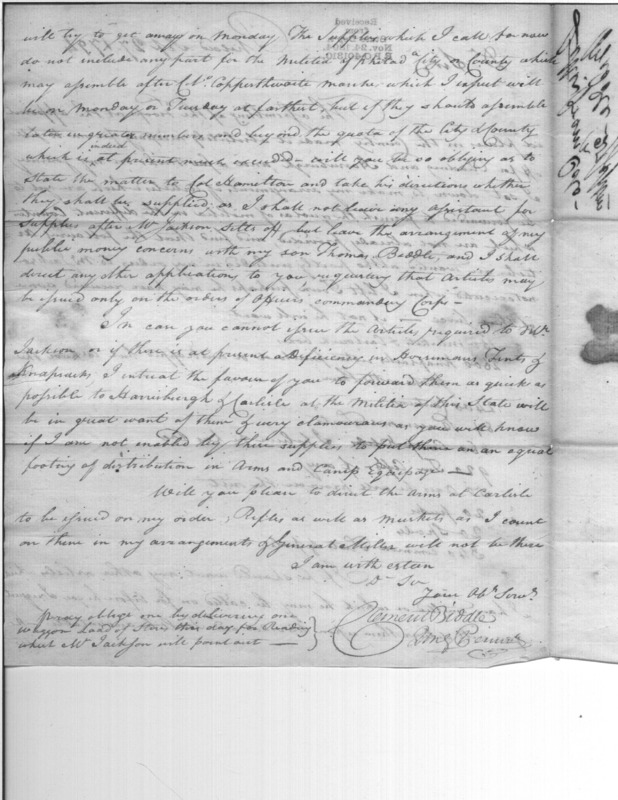 Received
Nov. 24, 1904
R. & P. O. 401810
will try to get away on Monday The Supplies which I call for now
do not include any part for the Militia of Philada City or County which
may assemble after Col. Copperthwaite marche which I expect will
be on Monday or Tuesday at farthest, but if they should assemble
later in greater numbers and beyond the quota of the City & County
which is indeed at present much exceeded - will you be so obliging as to
State the matter to Col Hamilton and take his directions whether
they shall be supplied, as I shall not leave any assistant for
Supplies after Mr Jackson setts off, but leave the arrangement of my
public money concerns with my son Thomas Biddle, and I shall
direct any other application to you, requesting that Articles may
be issued only on the orders of Officers commanding Corps -
In case you cannot issue the Articles required to Mr.
Jackson, or if there is at present a Deficiency in Horsemans Tents &
Knapsacks, I intreat the favour of you to forward them as quick as
possible to Harrisburgh & Carlisle as the Militia of this State will
be in great want of them & very clamourous as you will know
if I am not enabled by their supplies to put them on an equal
footing of distribution in Arms and Camp Equipage -
Will you please to direct the Arms at Carlisle
to be issued on my order, Rifles as well as Muskets as I count
on them in my arrangements & General Miller will not be there
I am with esteem
Dr Sir
Your Obt. Servt.
Clement Biddle
pray oblige me by delivering one
waggon Load of Stores this day for Reading
which Mr Jackson will point out -